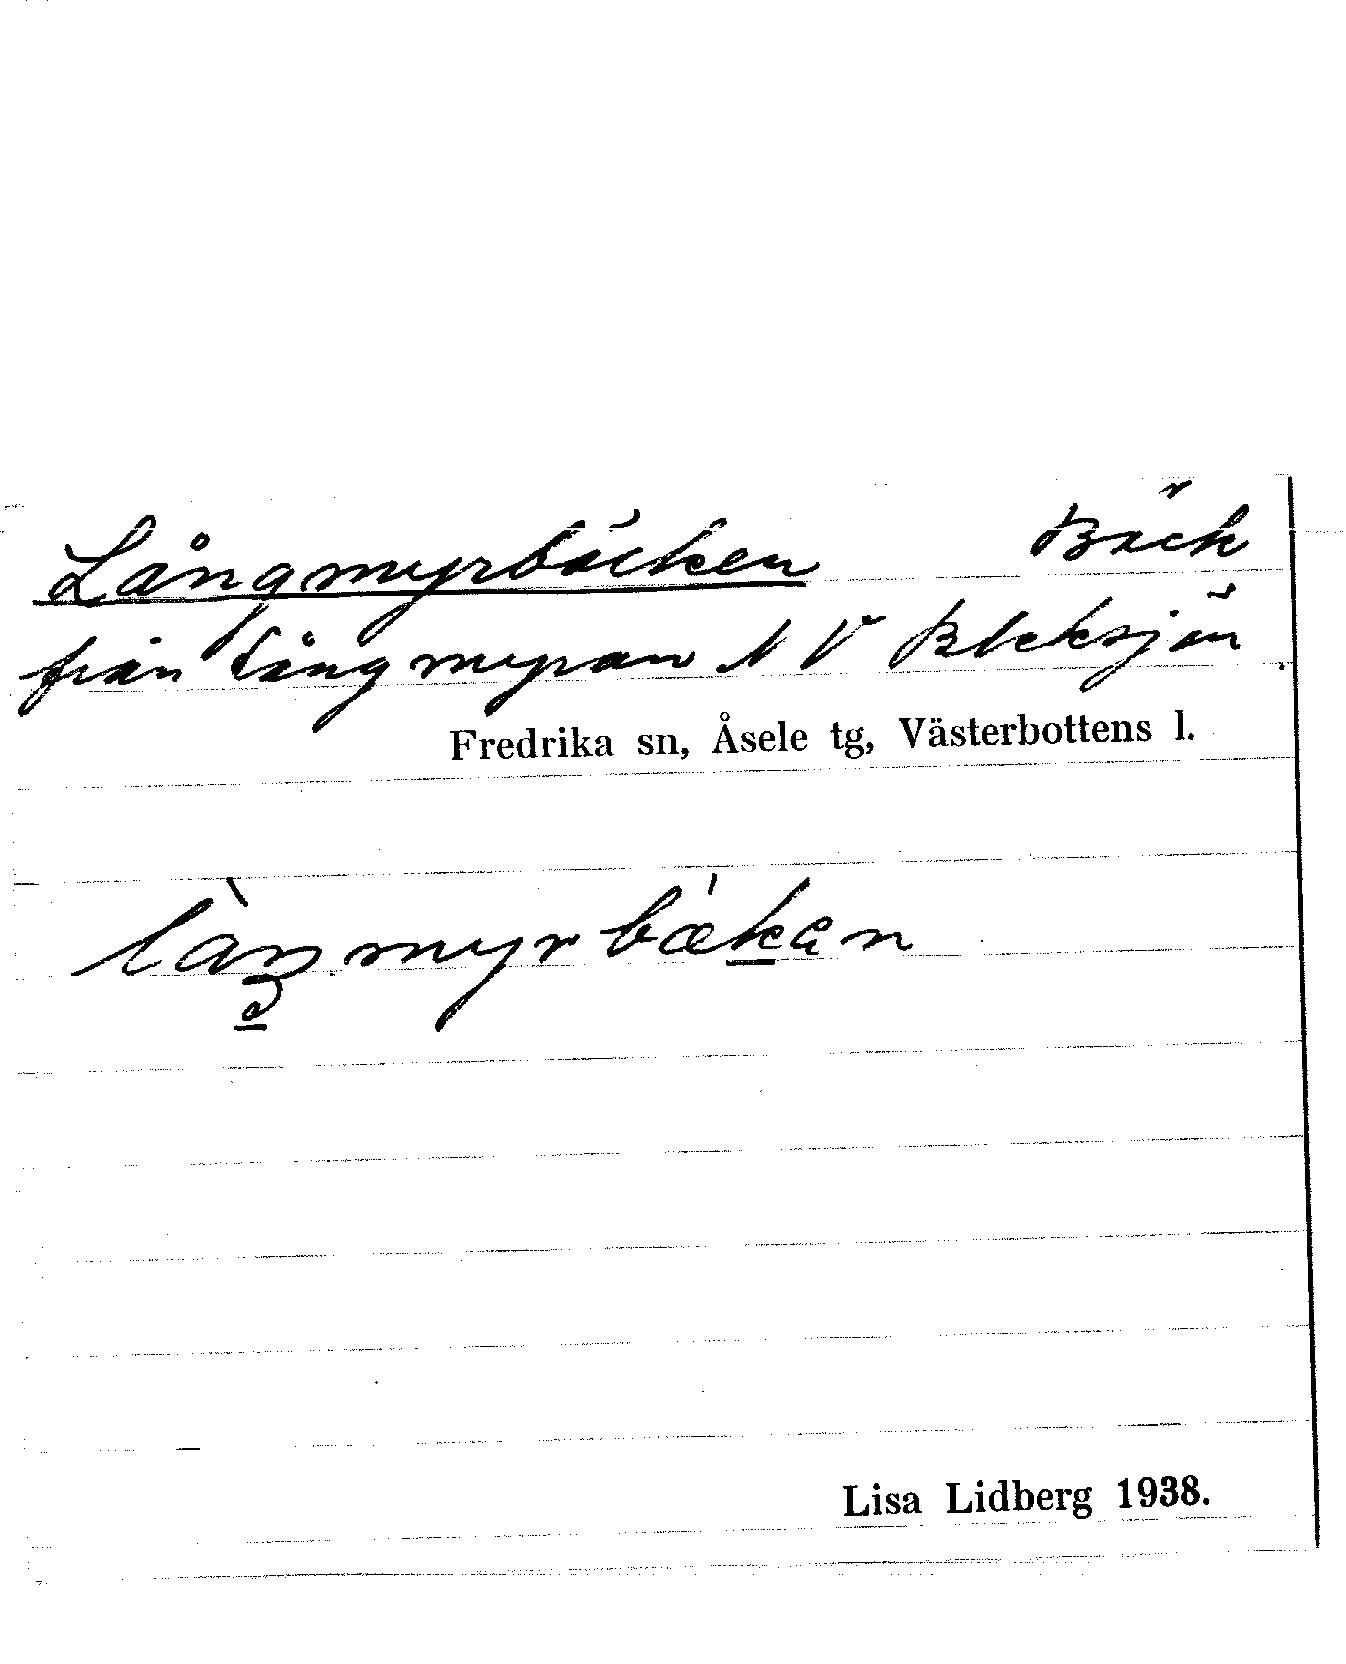 Långmyrbäcken Bäck
från Långmyran N V Bleksjön.
Fredrika sn, Åsele tg, Västerbottens l.
làŋmyrbækan
Lisa Lidberg 1938.